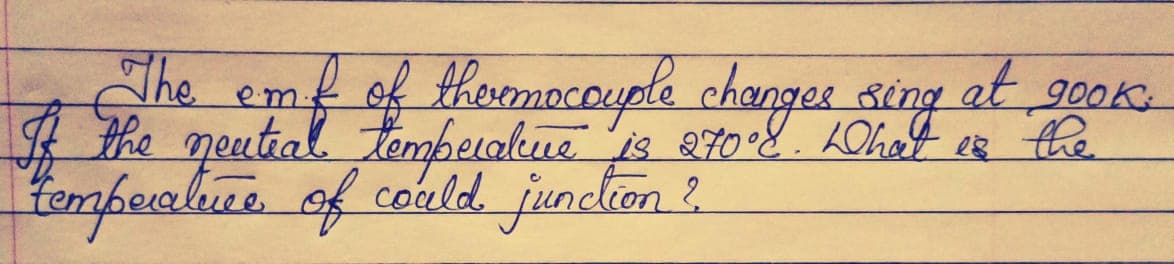 The e.m.f of thermocouple changes sing at 900K.
If the neutral temperature is 270°C. What is the
temperature of could junction ?